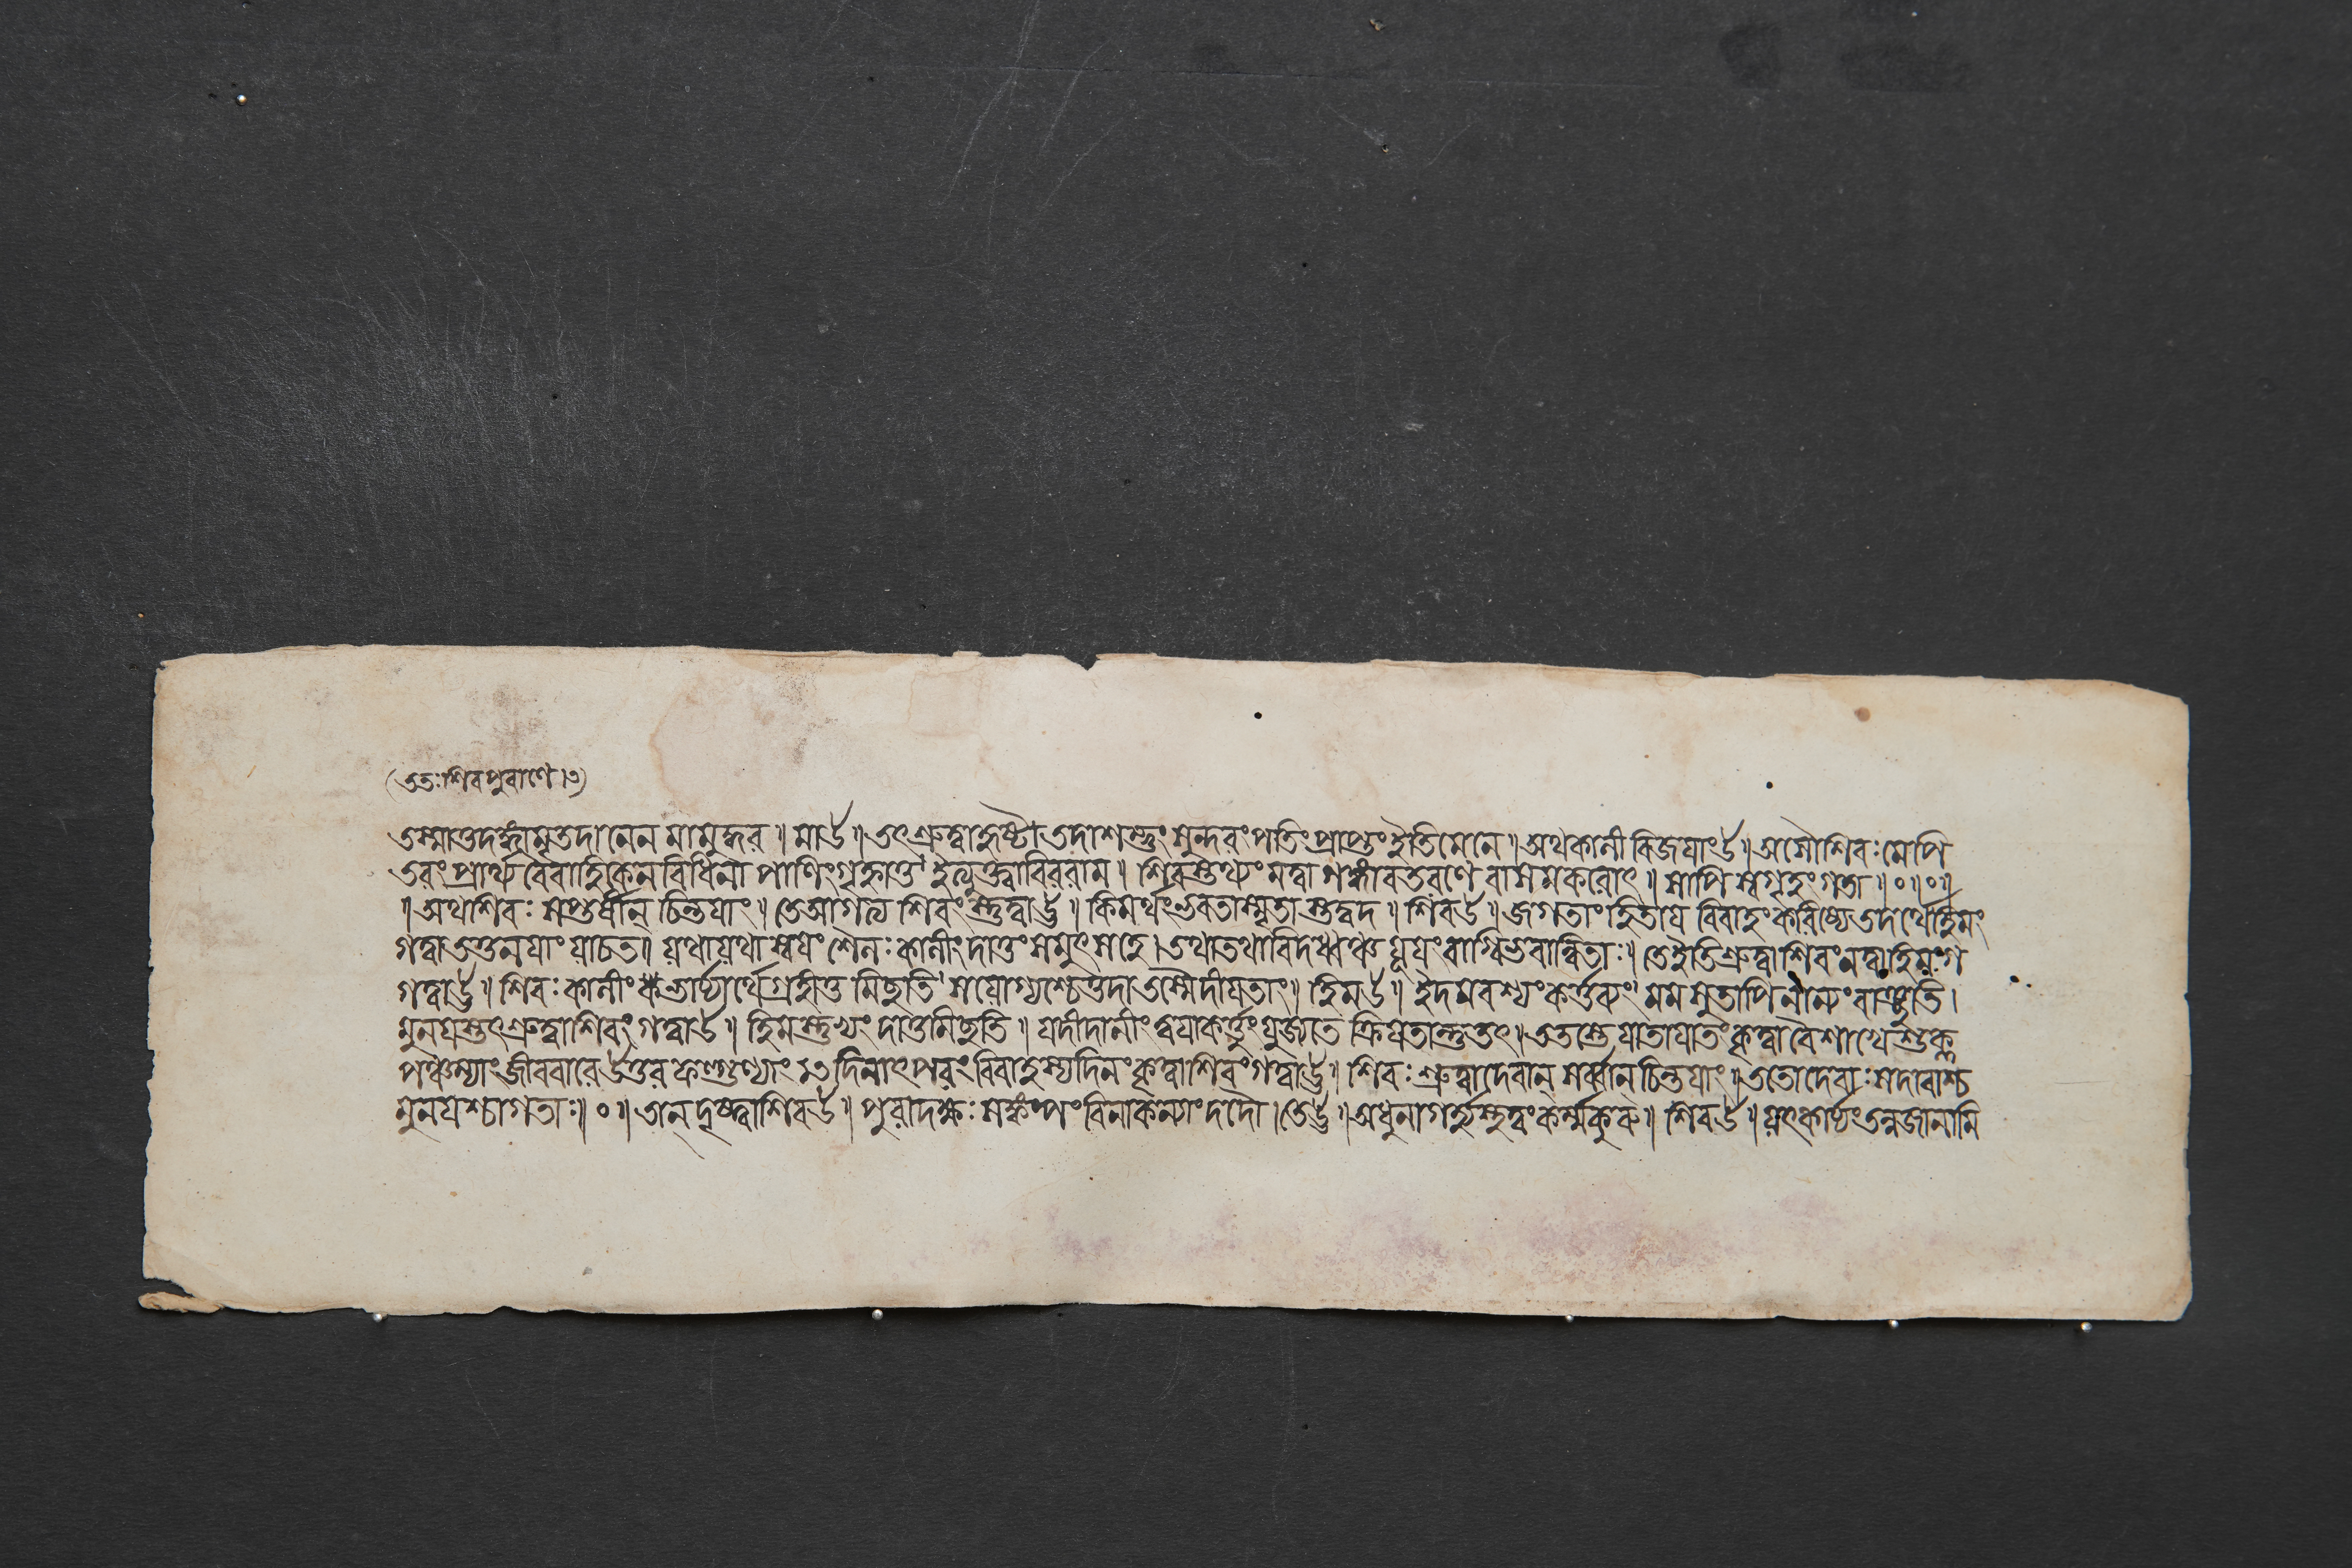 (ততঃশিবপুরাণে।৩)
তস্মাত্তদর্হামৃতদানেন মামুদ্ধর॥ সাউ॥ তৎশ্রুত্বাহৃষ্টৌ।তদাশম্ভুং সুন্দরংপতিংপ্রাপ্তুং ইতিমেনে॥ অথকালী বিজয়াংউ॥ অসৌশিবঃসোপি
এবংপ্রার্থ্য বৈবাহিকেনবিধিনা পাণিংগৃহ্নাতু ইত্যুক্ত্বাবিররাম॥ শিবস্তথ্যংমত্বা গঙ্গাবতরণে বাসমকরোৎ॥ সাপি স্বগৃহংগতা॥০॥০॥
॥অথশিবঃ সপ্তর্ষীন্ চিন্তয়াং॥ তেআগত্য শিবংস্তুত্বাউ॥ কিমর্থংভবতাস্মৃতাস্তদ্বদ॥ শিবউ॥ জগতাংহিতায় বিবাহংকরিষ্যেতদর্থেহিমং
গত্বাতত্তনয়াংযাচত॥ যথাযথাস্বয়ংশৈলঃকালীংদাতুংসমুৎসহে।তথাতথাবিদধ্বঞ্চ যূয়ংবাগ্বিভবান্বিতাঃ॥ তেইতিশ্রুত্বাশিবংনত্বাহিমংগ
গত্বাউ॥ শিবঃকালীং ভার্য্যার্থেগ্রহীতুমিচ্ছতি সযোগ্যশ্চেত্তদাতস্মৈদীয়তাং॥ হিমউ॥ ইদমবশ্যংকর্ত্তব্যং মমসুতাপিনান্যংবাঞ্ছতি।
মুনয়স্তৎশ্রুত্বাশিবংগত্বাউ॥ হিমস্তুভ্যংদাতুমিচ্ছতি॥ যদীদানীংত্বয়াকর্ত্তুংযুজ্যতে ক্রিয়তান্তুতৎ॥ততস্তেযাতাযাতংকৃত্বাবৈশাখেশুক্ল
পঞ্চম্যাংজীববারেউত্তরফল্গুণ্যাং দিনাৎপরংবিবাহস্যদিনংকৃত্বাশিবংগত্বাউ॥ শিবঃশ্রুত্বাদেবান্ সর্ব্বান্ চিন্তয়াং॥ততোদেবাঃসদারাশ্চ
মুনয়শ্চাগতাঃ॥০॥তান্ দৃষ্ট্বাশিবউ॥ পুরাদক্ষঃসঙ্কল্পংবিনাকন্যাংদদৌ।তেউ॥অধুনাগর্ত্ত্বকর্ম্মকুরু॥ শিবউ॥ যৎকার্য্যংতন্নজানামি